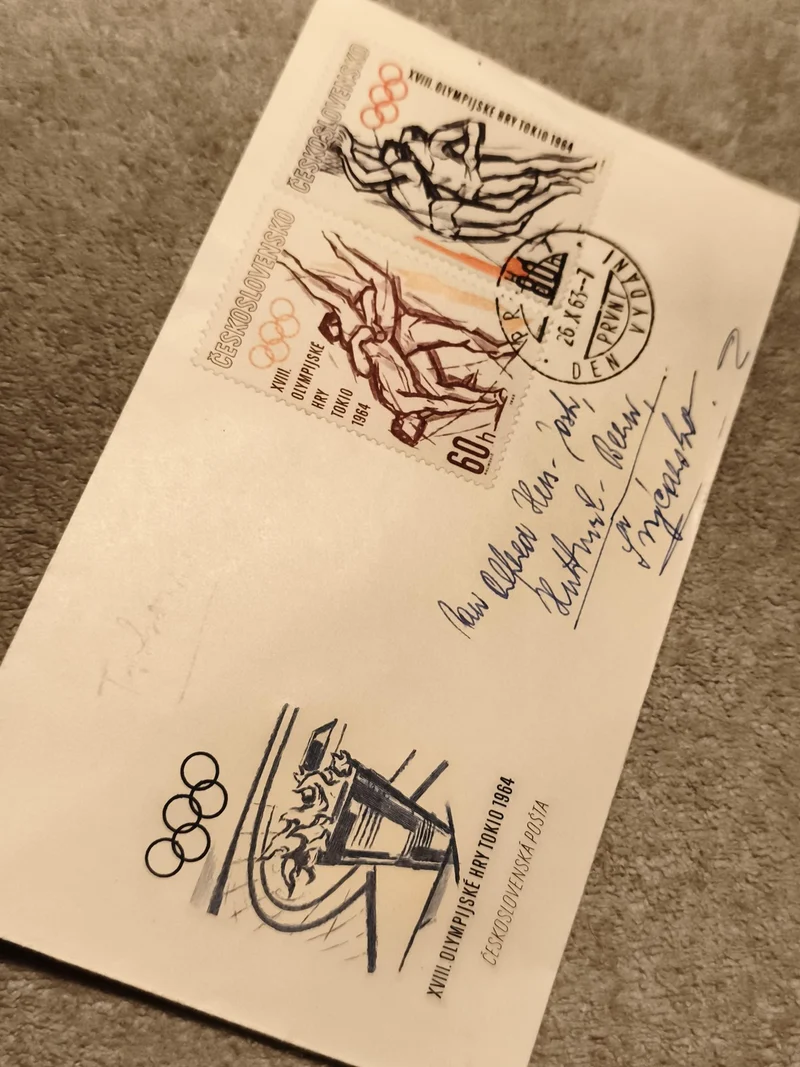 ČESKOSLOVENSKO
XVIII. OLYMPIJSKÉ HRY TOKIO 1964
80h
ČESKOSLOVENSKO
XVIII.
OLYMPIJSKÉ
HRY
TOKIO
1964
60h
26.X.63-7
PRVNÍ
DEN VYDÁNÍ
Pan Alfred
XVIII. OLYMPIJSKÉ HRY TOKIO 1964
ČESKOSLOVENSKÁ POŠTA